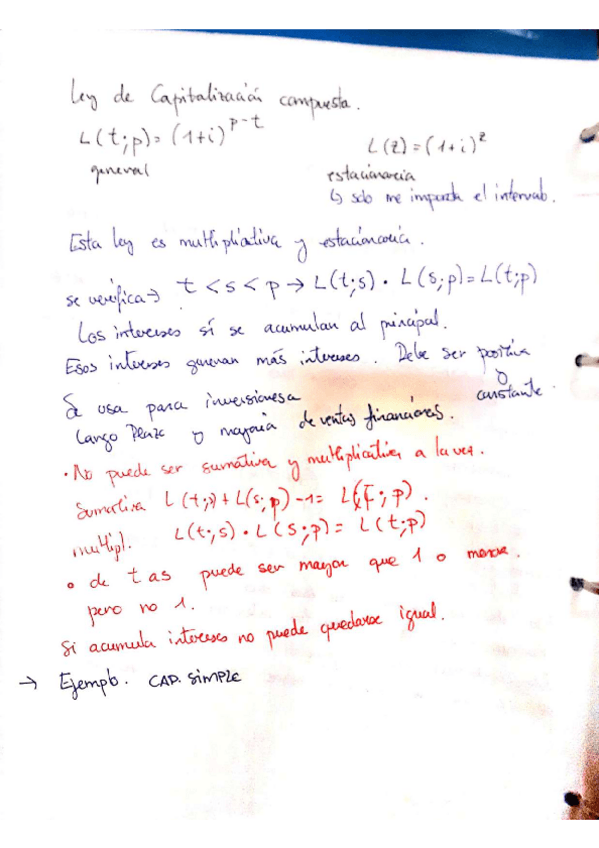 Ley de Capitalización compuesta.
L(t;p) = (1+i)^{p-t}
L(z) = (1+i)^z
general
estacionaria
↳ solo me importa el intervalo.
Esta ley es multiplicativa y estacionaria.
se verifica → t < s < p → L(t;s) · L(s;p) = L(t;p)
Los intereses sí se acumulan al principal.
Esos intereses generan más intereses. Debe ser positiva
o
Se usa para inversiones a constante.
Largo Plazo y mayoria de ventas financieras.
· No puede ser sumativa y multiplicativa a la vez.
Sumativa L(t;s) + L(s;p) - 1 = L(t;p).
multipl. L(t;s) · L(s;p) = L(t;p)
• de t a s puede ser mayor que 1 o menor.
pero no 1.
Si acumula intereses no puede quedarse igual.
→ Ejemplo. CAP. SIMPLE